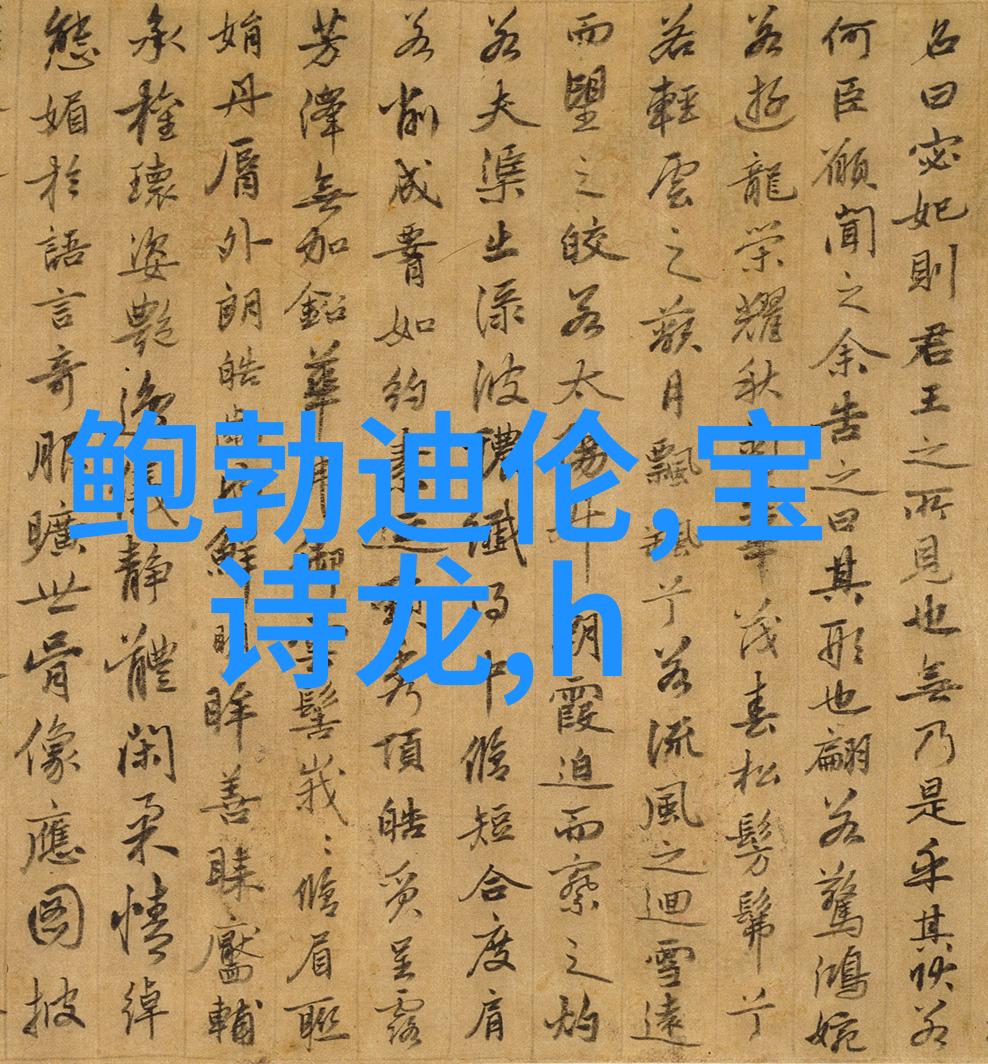 名曰宓妃則君王之所見也無乃是乎其狀若
何臣願聞之余告之曰其形也翩若驚鴻婉
若遊龍榮耀秋菊華茂春松髣髴兮
若輕雲之蔽月飄飖兮若流風之迴雪遠
而望之皎若太陽升朝霞迫而察之灼
若夫渠出淥波穠纖得中脩短合度肩
若削成要如約素延頸秀項皓質呈露
芳澤無加鉛華弗御雲髻峩〻脩眉聯
娟丹脣外朗皓齒內鮮明眸善睞靨輔
承權瓌姿艷逸儀靜體閑柔情綽
態媚於語言奇服曠世骨像應圖披
鲍勃迪伦,宝
诗龙,h